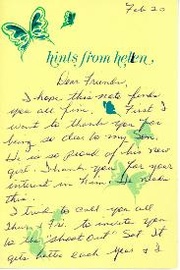 Feb 20
hints from helen,
Dear Friends,
I hope this note finds
you all fine. First I
want to thank you for
being so dear to my son.
He is so proud of his new
girl. Thank you for your
interest in him. He needs
this.
I tried to call you all
Thurs & Fri. to invite you
to the "Shoot Out" Sat. It
gets better each year & I